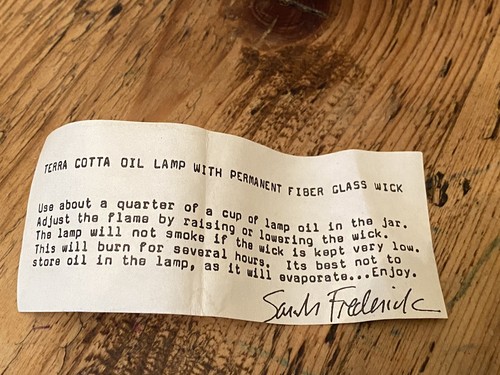 TERRA COTTA OIL LAMP WITH PERMANENT FIBER GLASS WICK
Use about a quarter of a cup of lamp oil in the jar.
Adjust the flame by raising or lowering the wick.
The lamp will not smoke if the wick is kept very low.
This will burn for several hours. Its best not to
store oil in the lamp, as it will evaporate...Enjoy.
Sarah Frederick